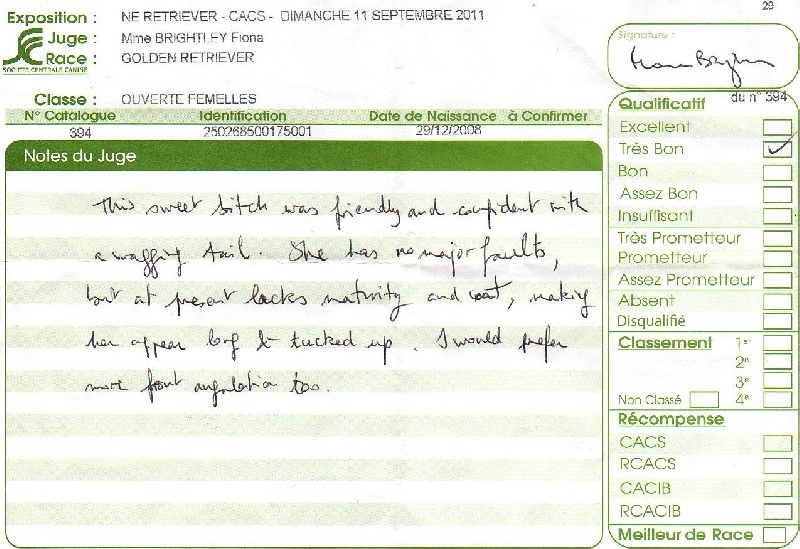 29
Exposition : NE RETRIEVER - CACS - DIMANCHE 11 SEPTEMBRE 2011
Juge : Mme BRIGHTLEY Fiona
Race : GOLDEN RETRIEVER
SOCIÉTÉ CENTRALE CANINE
Classe : OUVERTE FEMELLES
N° Catalogue Identification Date de Naissance à Confirmer
394 250268500175001 29/12/2008
Notes du Juge
This sweet bitch was friendly and confident with
a wagging tail. She has no major faults,
but at present lacks maturity and coat, making
her appear long & tucked up. I would prefer
more front angulation too.
Signature :
du n° 394
Qualificatif
Excellent
Très Bon ✓
Bon
Assez Bon
Insuffisant
Très Prometteur
Prometteur
Assez Prometteur
Absent
Disqualifié
Classement 1er
2e
3e
Non Classé 4e
Récompense
CACS
RCACS
CACIB
RCACIB
Meilleur de Race